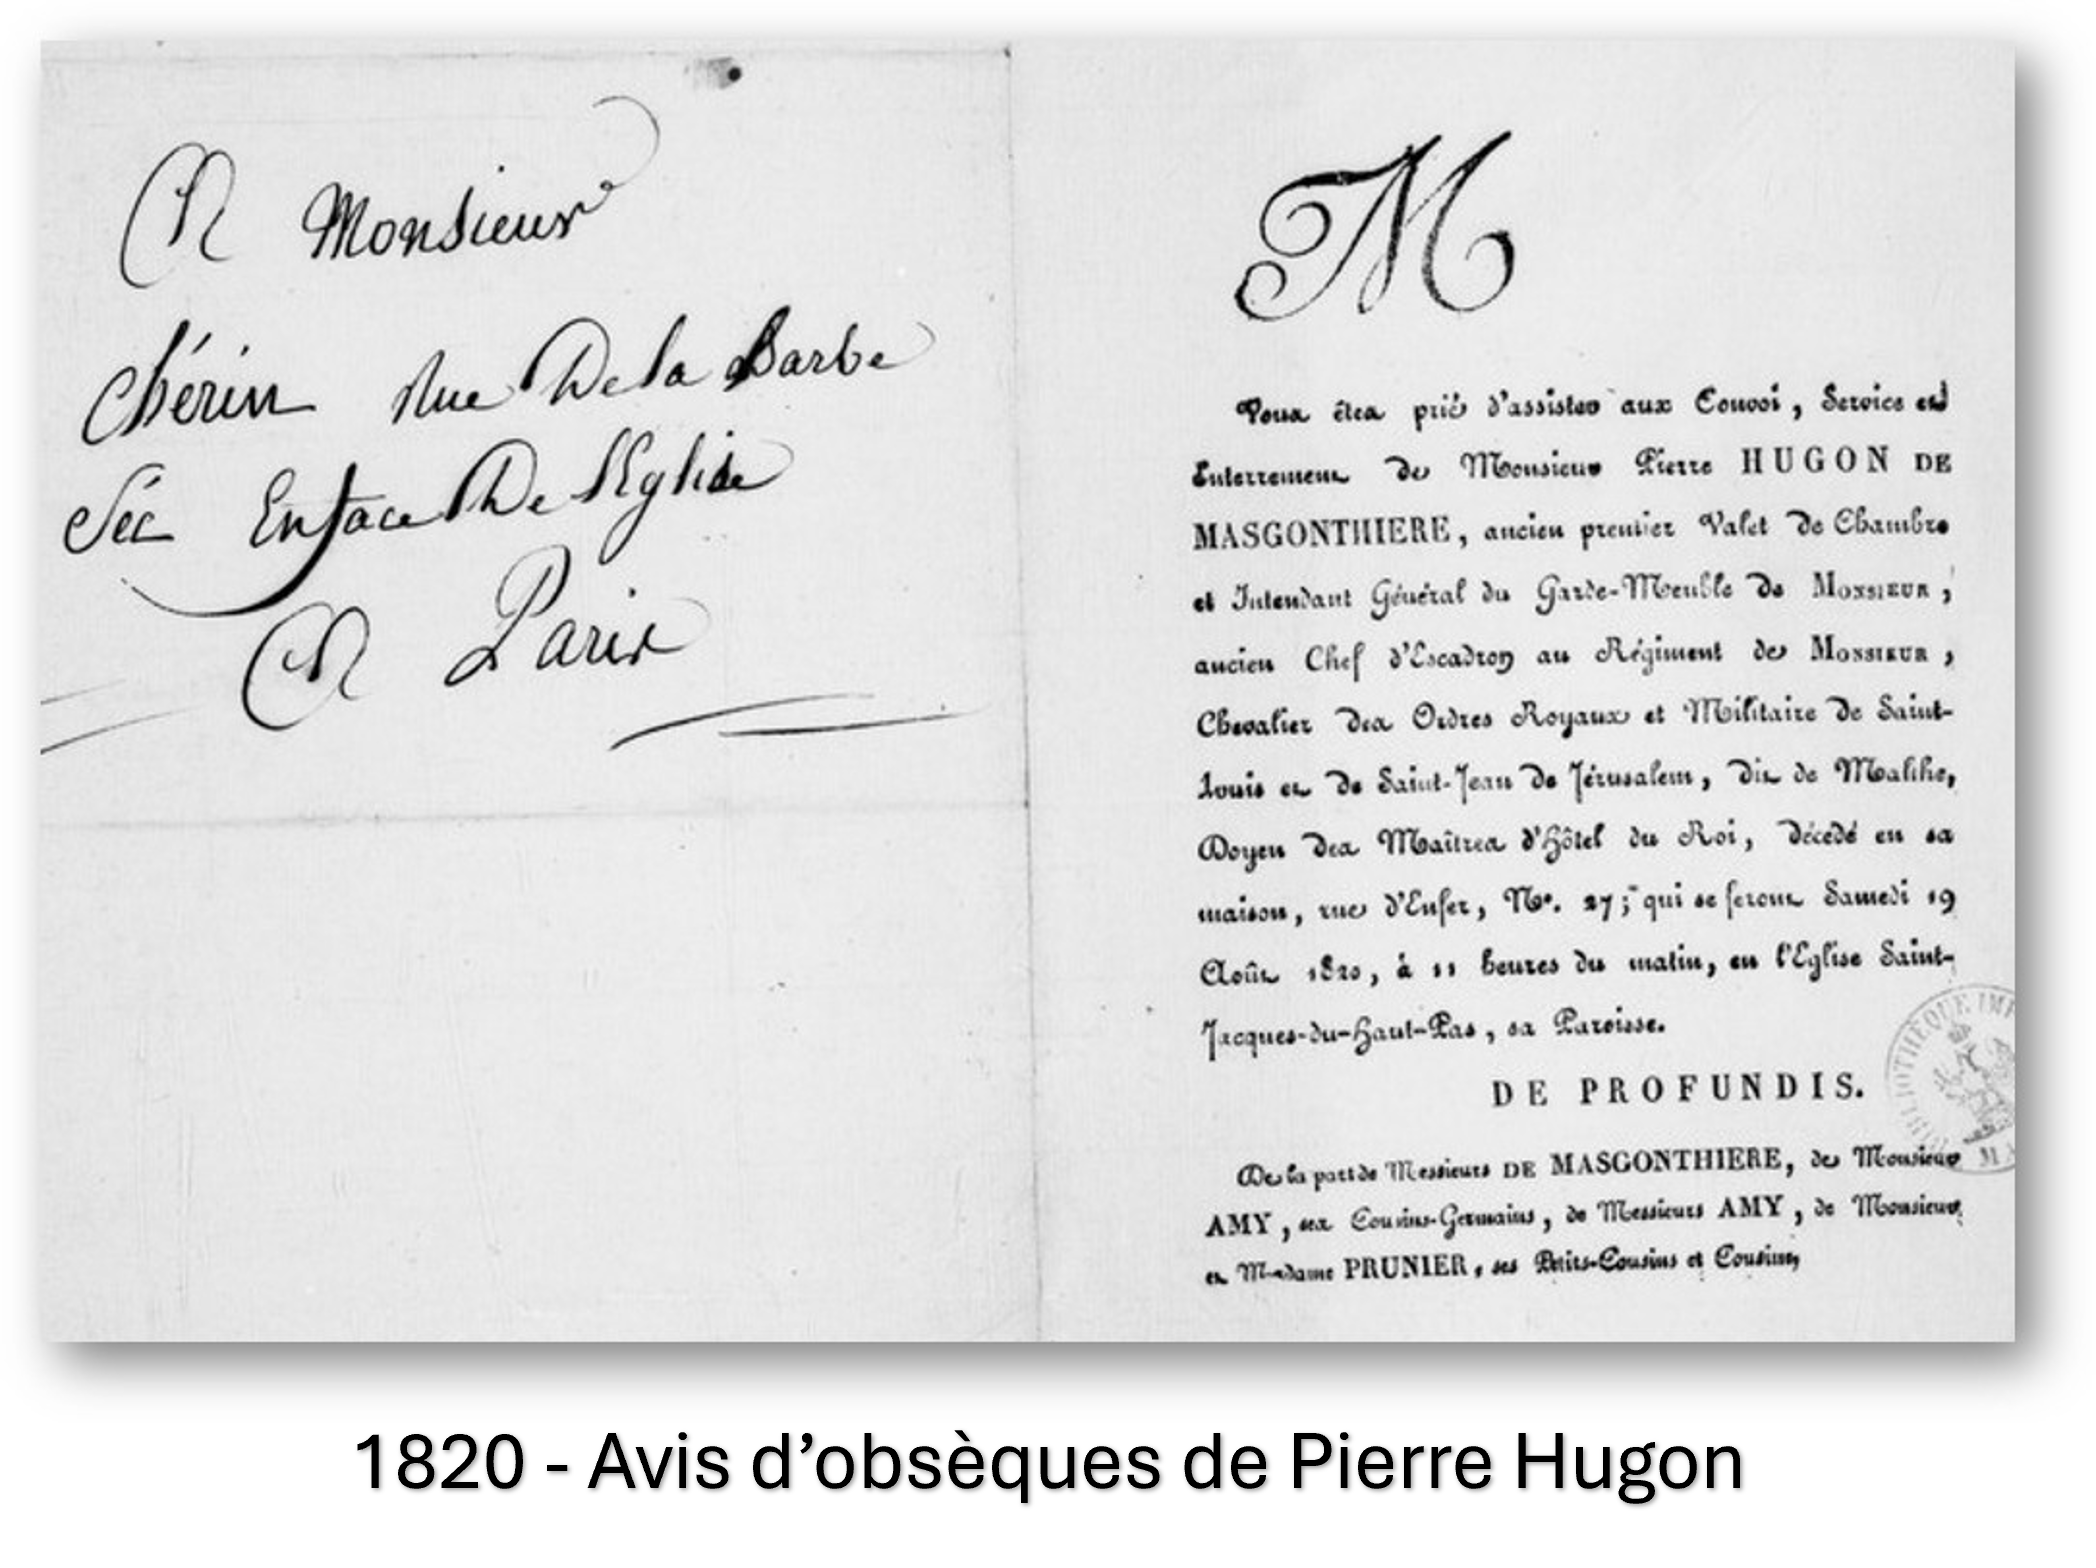 A Monsieur
Chérin Rue De la Barbe
Séc En face De l'Eglise
A Paris
M
Vous êtes prié d'assister aux Convoi, Service et
Enterrement de Monsieur Pierre HUGON DE
MASGONTHIERE, ancien premier Valet de Chambre
et Intendant Général du Garde-Meuble de MONSIEUR,
ancien Chef d'Escadron au Régiment de MONSIEUR,
Chevalier des Ordres Royaux et Militaire de Saint-
Louis et de Saint-Jean de Jérusalem, dit de Malthe,
Doyen des Maîtres d'Hôtel du Roi, décédé en sa
maison, rue d'Enfer, N°. 27; qui se feront Samedi 19
Août 1820, à 11 heures du matin, en l'Eglise Saint-
Jacques-du-Haut-Pas, sa Paroisse.
DE PROFUNDIS.
De la part de Messieurs DE MASGONTHIERE, de Monsieur
AMY, ses Cousins-Germains, de Messieurs AMY, de Monsieur
et Madame PRUNIER, ses Petits-Cousins et Cousine,
BIBLIOTHÈQUE IMP
1820 - Avis d'obsèques de Pierre Hugon